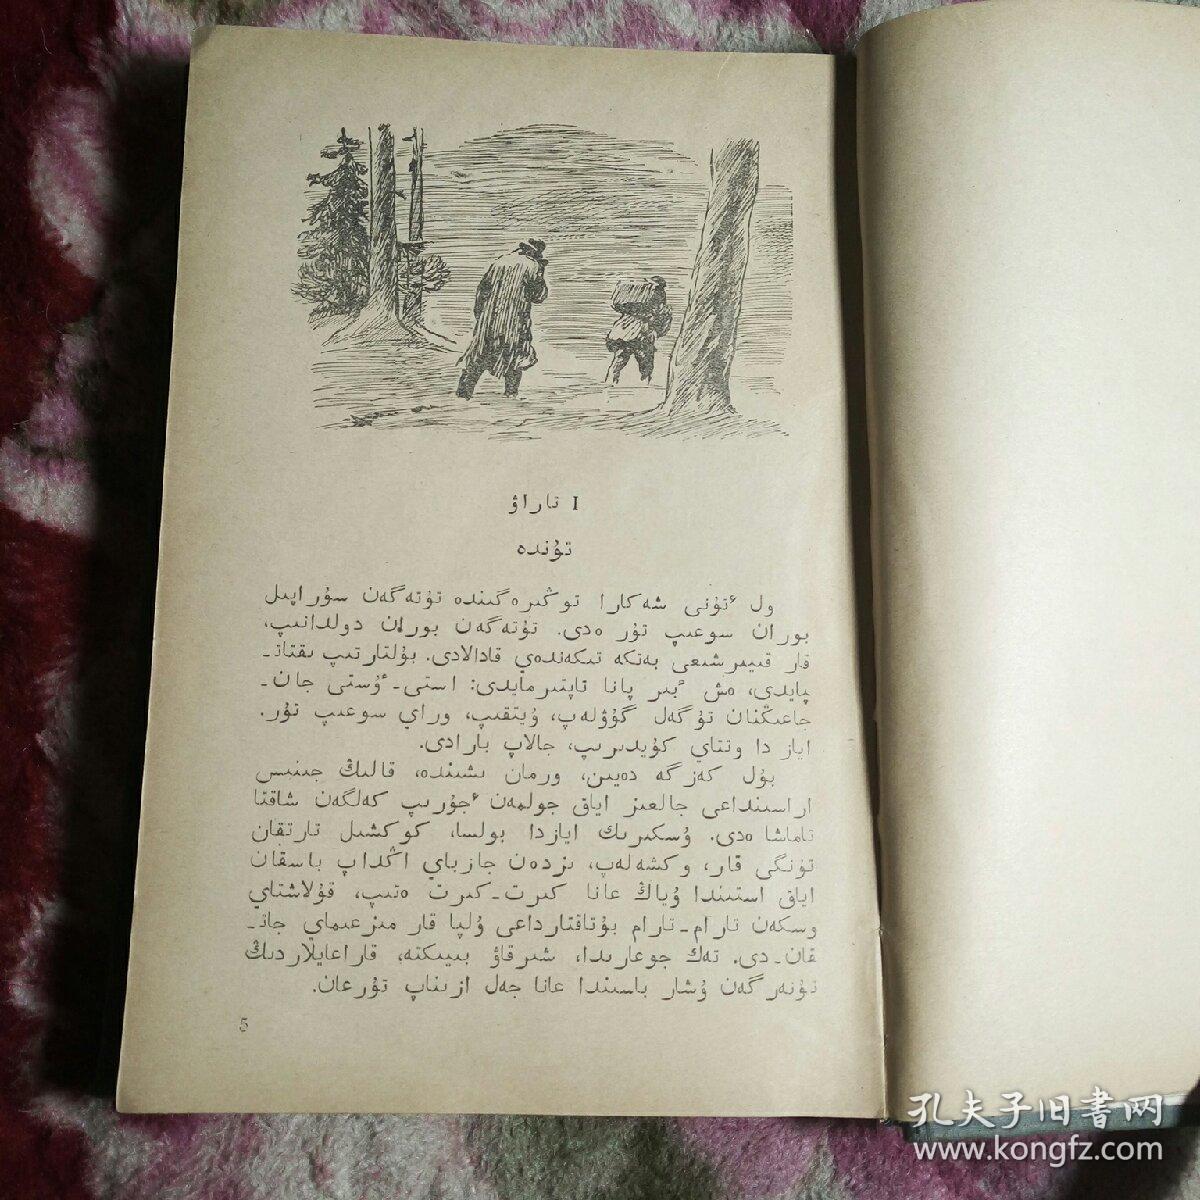 I تاراۋ
تۇندە
ول ٴتۇنى شەكارا توڭىرەگىندە تۇتەگەن سۇراپىل
بوران سوعىپ تۇر ەدى. تۇتەگەن بوران دولدانىپ،
قار قيىرشىعى بەتكە تىكەندەي قادالادى. بۇلتارتىپ ىقتات-
پايدى، ەش ٴبىر پانا تاپتىرمايدى: استى-ٴۇستى جان-
جاعىڭنان تۇگەل گۇۋلەپ، ۇيتقىپ، وراي سوعىپ تۇر.
اياز دا وتتاي كۇيدىرىپ، جالاپ بارادى.
بۇل كەزگە دەيىن، ورمان ىشىندە، قالىڭ جىنىس
اراسىنداعى جالعىز اياق جولمەن ٴجۇرىپ كەلگەن شاقتا
تاماشا ەدى. ۇسكىرىك ايازدا بولسا، كوكشىل تارتقان
تۇنگى قار، وكشەلەپ، ىزدەن جازباي اڭداپ باسقان
اياق استىندا ۇياڭ عانا كىرت-كىرت ەتىپ، قۇلاشتاي
وسكەن تارام-تارام بۇتاقتارداعى ۇلپا قار مىزعىماي جات-
قان-دى. تەك جوعارىدا، شىرقاۋ بيىكتە، قاراعايلاردىڭ
تۇنەرگەن ۇشار باسىندا عانا جەل ازىناپ تۇرعان.
5
孔夫子旧书网
www.kongfz.com